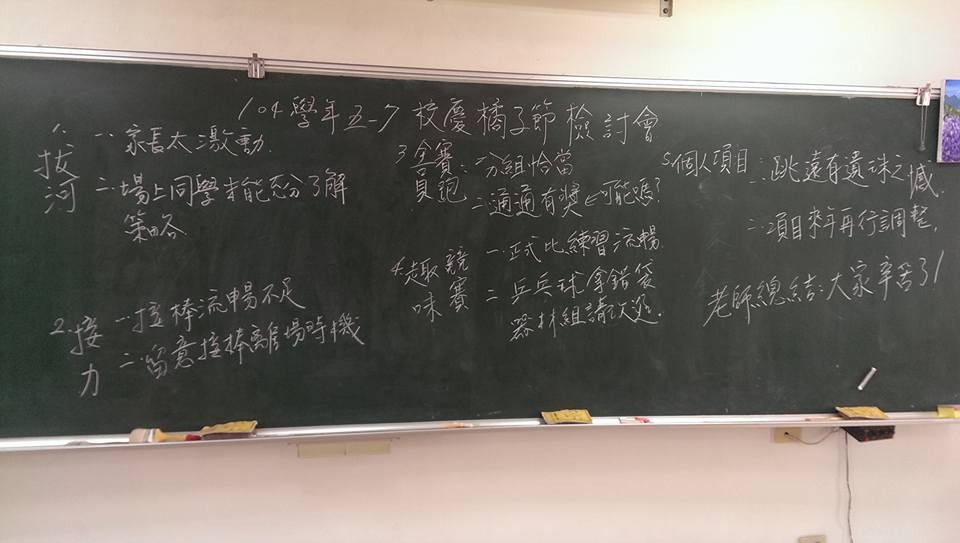 104學年五-7 校慶橘子節檢討會
1. 拔河
一、家長太激動.
二、場上同學未能充分了解
策略
2. 接力
一、接棒流暢不足
二、留意接棒離場時機
3. 全員賽跑
一、分組恰當
二、通通有獎←可能嗎?
4. 趣味競賽
一、正式比練習流暢.
二、乒乓球拿錯袋
器材組請改進.
5. 個人項目
一、跳遠有遺珠之憾.
二、項目來年再行調整.
老師總結:大家辛苦了!